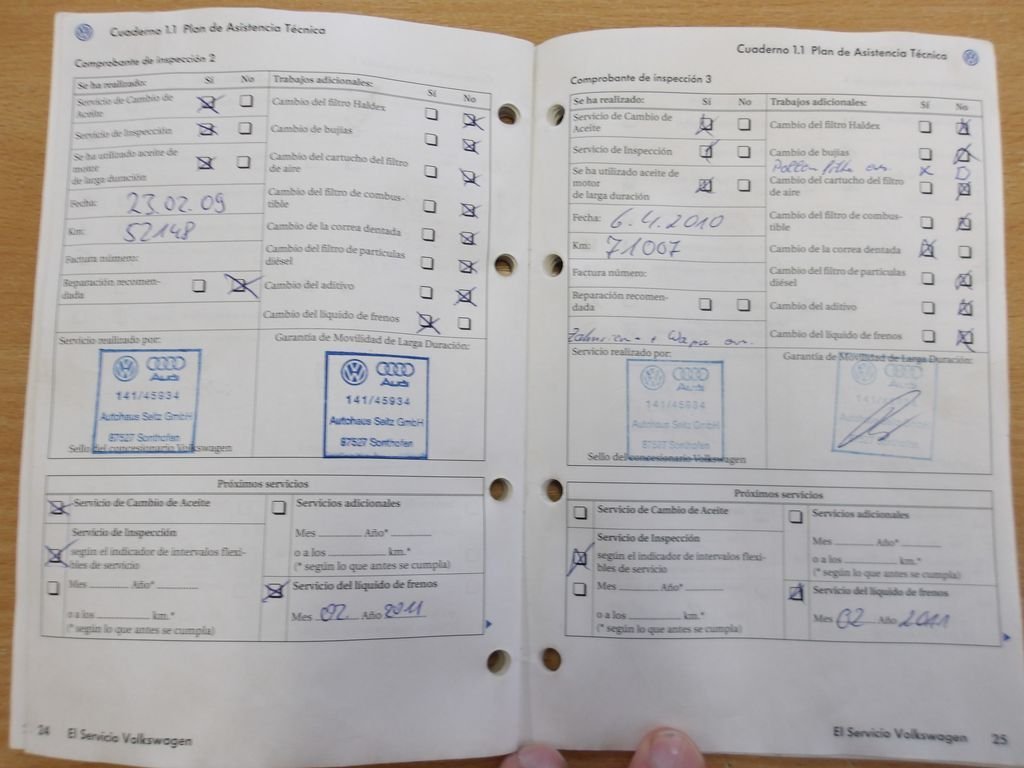 Cuaderno 1.1 Plan de Asistencia Técnica
Comprobante de inspección 2
Se ha realizado: Sí No
Servicio de Cambio de
Aceite
Servicio de Inspección
Se ha utilizado aceite de
motor
de larga duración
Fecha: 23.02.09
Km: 52148
Factura número:
Reparación recomen-
dada
Trabajos adicionales: Sí No
Cambio del filtro Haldex
Cambio de bujías
Cambio del cartucho del filtro
de aire
Cambio del filtro de combus-
tible
Cambio de la correa dentada
Cambio del filtro de partículas
diésel
Cambio del aditivo
Cambio del líquido de frenos
Servicio realizado por:
Audi
141/45934
Autohaus Seitz GmbH
87527 Sonthofen
Sello del concesionario Volkswagen
Garantía de Movilidad de Larga Duración:
Audi
141/45934
Autohaus Seitz GmbH
87527 Sonthofen
Próximos servicios
Servicio de Cambio de Aceite
Servicio de Inspección
según el indicador de intervalos flexi-
bles de servicio
Mes Año*
o a los km.*
(* según lo que antes se cumpla)
Servicios adicionales
Mes Año*
o a los km.*
(* según lo que antes se cumpla)
Servicio del líquido de frenos
Mes 02 Año 2011
24 El Servicio Volkswagen
Cuaderno 1.1 Plan de Asistencia Técnica
Comprobante de inspección 3
Se ha realizado: Sí No
Servicio de Cambio de
Aceite
Servicio de Inspección
Se ha utilizado aceite de
motor
de larga duración
Fecha: 6.4.2010
Km: 71007
Factura número:
Reparación recomen-
dada
Trabajos adicionales: Sí No
Cambio del filtro Haldex
Cambio de bujías
Pollen
Cambio del cartucho del filtro
de aire
Cambio del filtro de combus-
tible
Cambio de la correa dentada
Cambio del filtro de partículas
diésel
Cambio del aditivo
Cambio del líquido de frenos
Servicio realizado por:
Audi
141/45934
Autohaus Seitz GmbH
87527 Sonthofen
Sello del concesionario Volkswagen
Garantía de Movilidad de Larga Duración:
Audi
Próximos servicios
Servicio de Cambio de Aceite
Servicio de Inspección
según el indicador de intervalos flexi-
bles de servicio
Mes Año*
o a los km.*
(* según lo que antes se cumpla)
Servicios adicionales
Mes Año*
o a los km.*
(* según lo que antes se cumpla)
Servicio del líquido de frenos
Mes 02 Año 2011
El Servicio Volkswagen 25